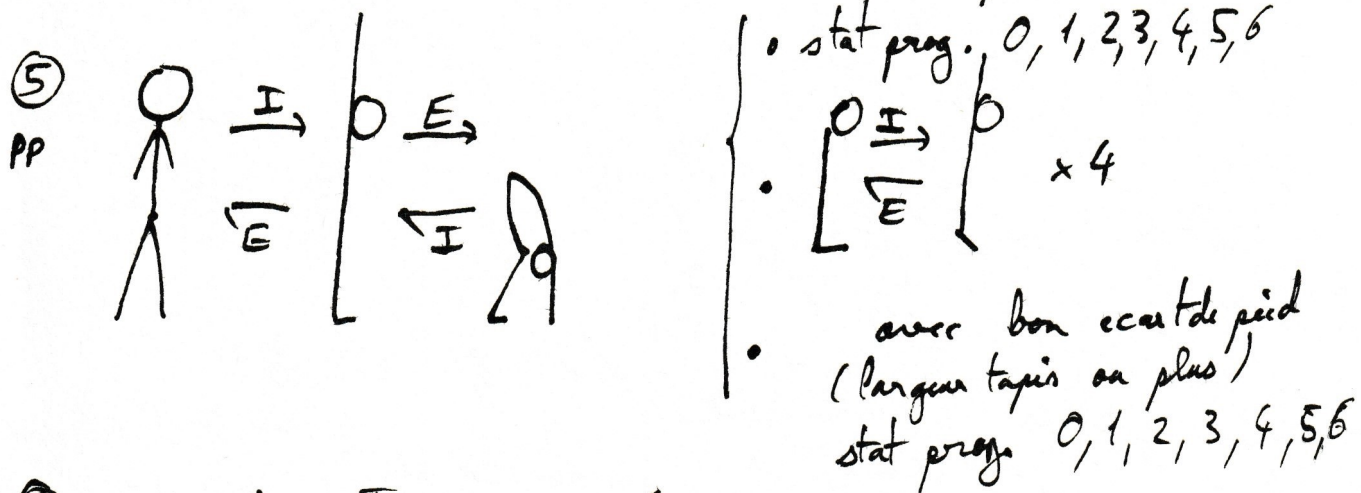 • stat prog. 0, 1, 2, 3, 4, 5, 6
⑤
PP
I
E
E
I
• I
E
x 4
• avec bon ecart de pied
(largeur tapis ou plus)
stat prog. 0, 1, 2, 3, 4, 5, 6